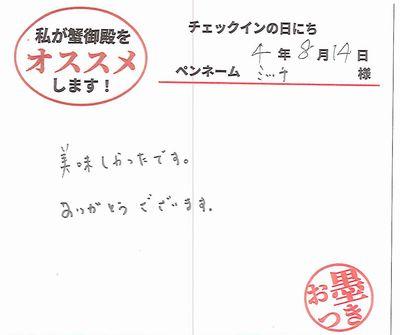 私が蟹御殿を
オススメ
します！
チェックインの日にち
4年8月14日
ペンネーム ミッチ 様
美味しかったです。
ありがとうございます。
お墨つき